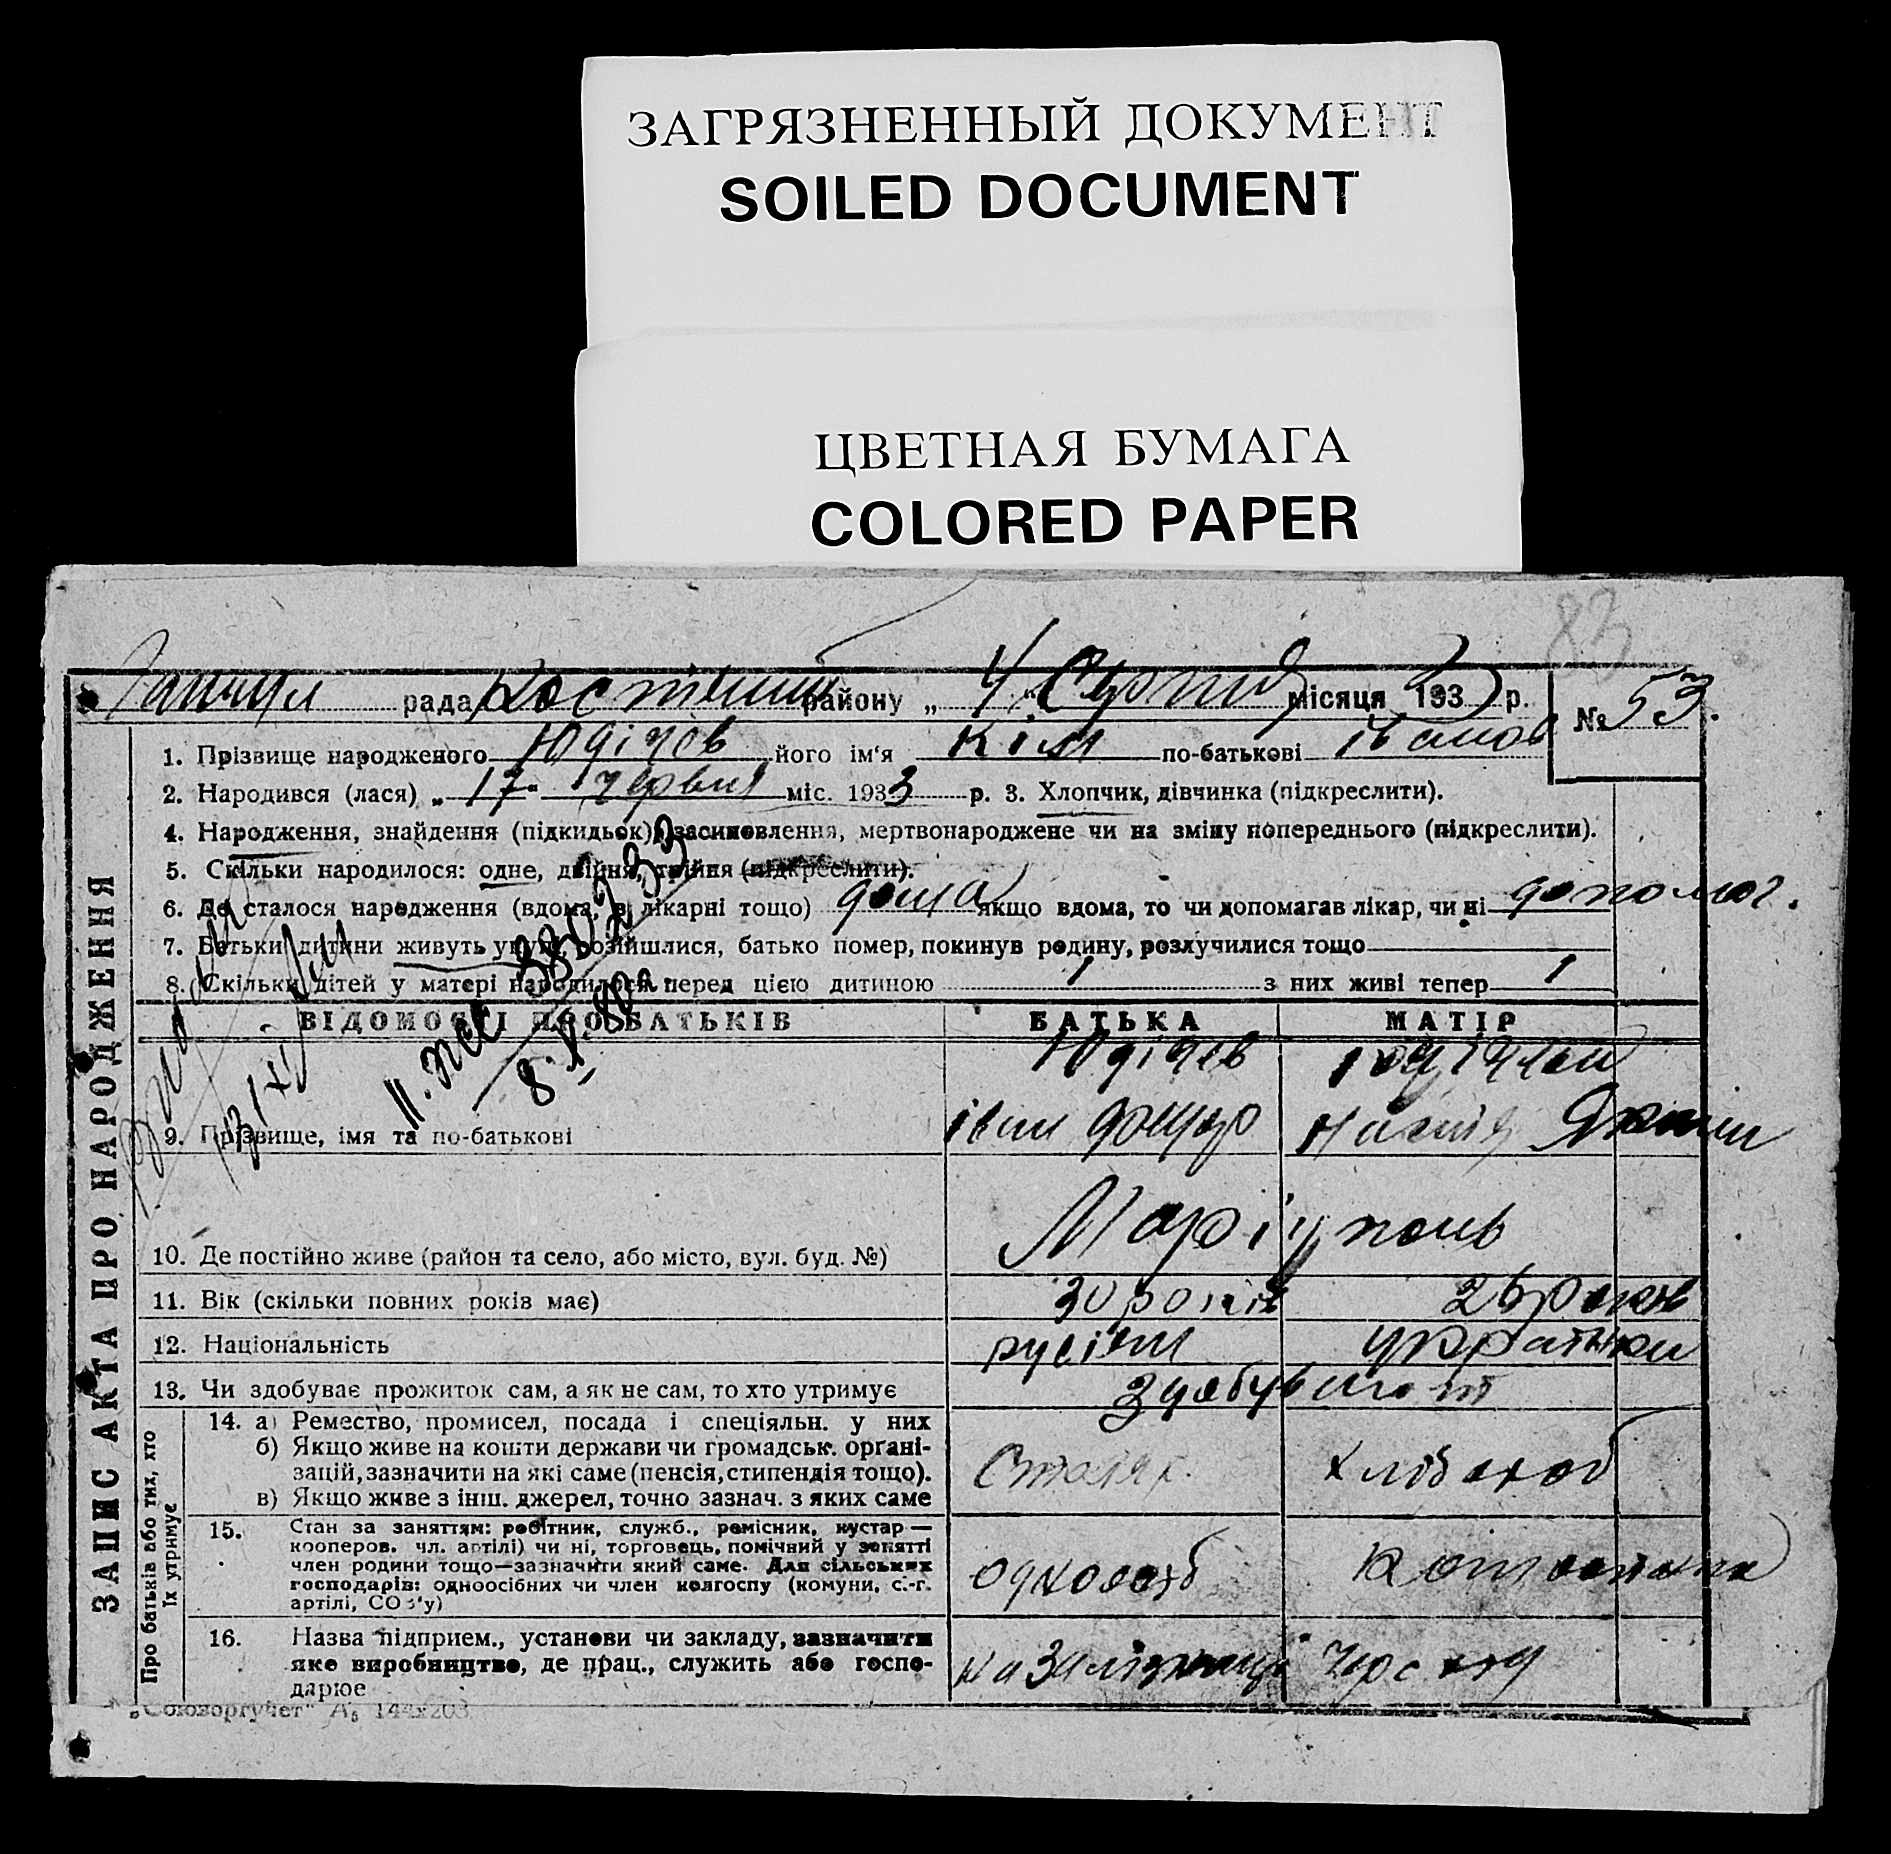 ЗАГРЯЗНЕННЫЙ ДОКУМЕНТ
SOILED DOCUMENT
ЦВЕТНАЯ БУМАГА
COLORED PAPER
83
рада району „ 4 " Серпня місяця 1933 р.
№ 53.
ЗАПИС АКТА ПРО НАРОДЖЕННЯ
1. Прізвище народженого Юдічев його ім‘я Кім по-батькові Іванов
2. Народився (лася) „ 17 " червня міс. 1933 р. 3. Хлопчик, дівчинка (підкреслити).
4. Народження, знайдення (підкидьок), засиновлення, мертвонароджене чи на зміну попереднього (підкреслити).
5. Скільки народилося: одне, двійня, трійня (підкреслити).
6. Де сталося народження (вдома, в лікарні тощо) дома якщо вдома, то чи допомагав лікар, чи ні допомог.
7. Батьки дитини живуть укупі, розійшлися, батько помер, покинув родину, розлучилися тощо
8. Скільки дітей у матері народилося перед цією дитиною 1 з них живі тепер 1
ВІДОМОСТІ ПРО БАТЬКІВ БАТЬКА МАТІР
Юдічев
9. Прізвище, імя та по-батькові Іван
10. Де постійно живе (район та село, або місто, вул. буд. №) Маріуполь
11. Вік (скільки повних років має) 30 років 26 років
12. Національність русіян українка
13. Чи здобуває прожиток сам, а як не сам, то хто утримує
Про батьків або тих, хто
їх утримує
14. а) Ремество, промисел, посада і спеціяльн. у них
б) Якщо живе на кошти держави чи громадськ. органі-
зацій, зазначити на які саме (пенсія, стипендія тощо). Столяр. хлібороб
в) Якщо живе з інш. джерел, точно зазнач. з яких саме
15. Стан за заняттям: робітник, служб., ремісник, кустар—
кооперов. чл. артілі) чи ні, торговець, помічний у занятті
член родини тощо—зазначити який саме. Для сільських
господарів: одноосібних чи член колгоспу (комуни, с.-г.
артілі, СОЗ'у)
16. Назва підприєм., установи чи закладу, зазначити
яке виробництво, де прац., служить або госпо-
дарює на Залізниці
„Союзоргучет" А5 144х203